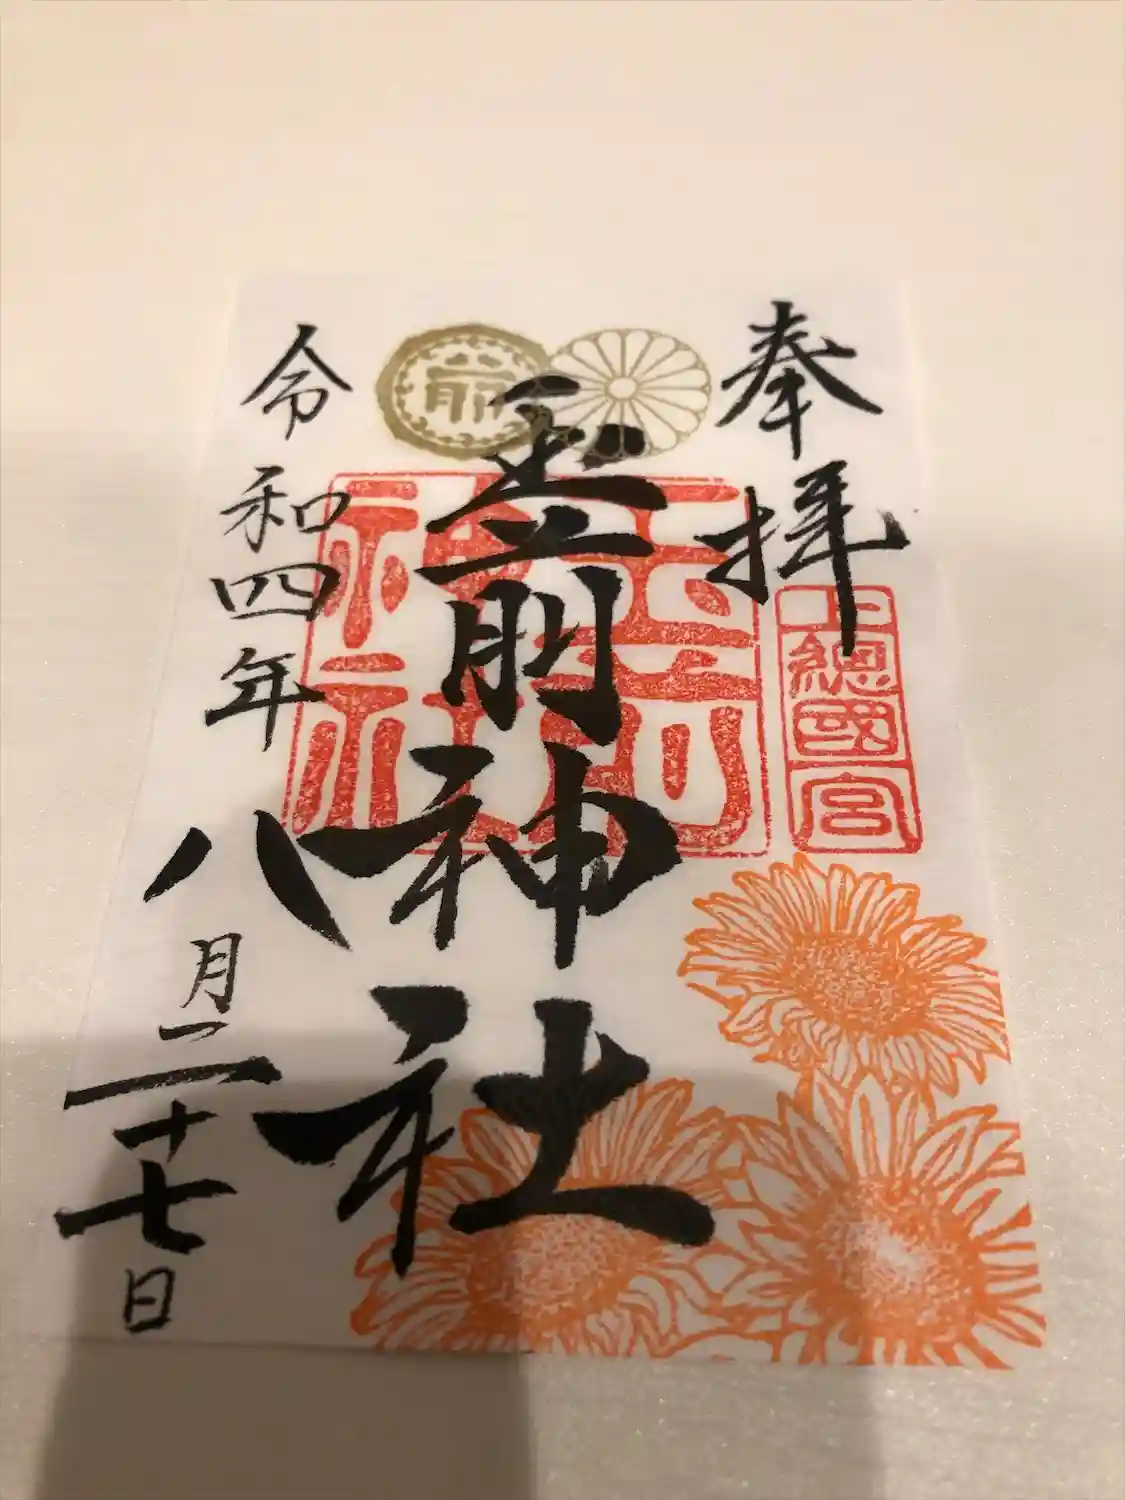 奉拝
上總國宮
玉前神社
玉前神社
前
令和四年八月二十七日